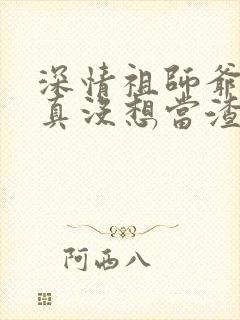 深情祖師爺
真沒想當渣
阿西八